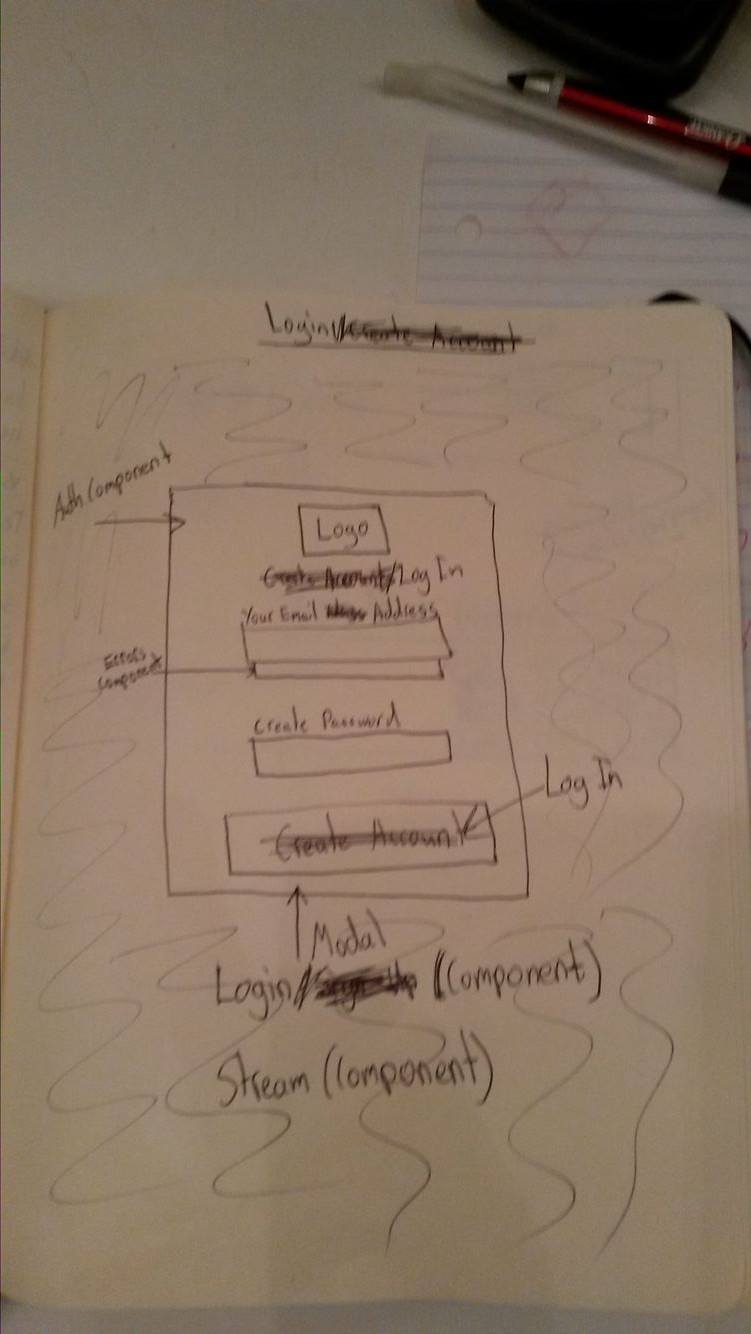 Login/Create Account
Auth Component
Logo
Create Account/Log In
Your Email Address
Errors
Component
Create Password
Log In
Create Account
Modal
Login/ (Component)
Stream (Component)